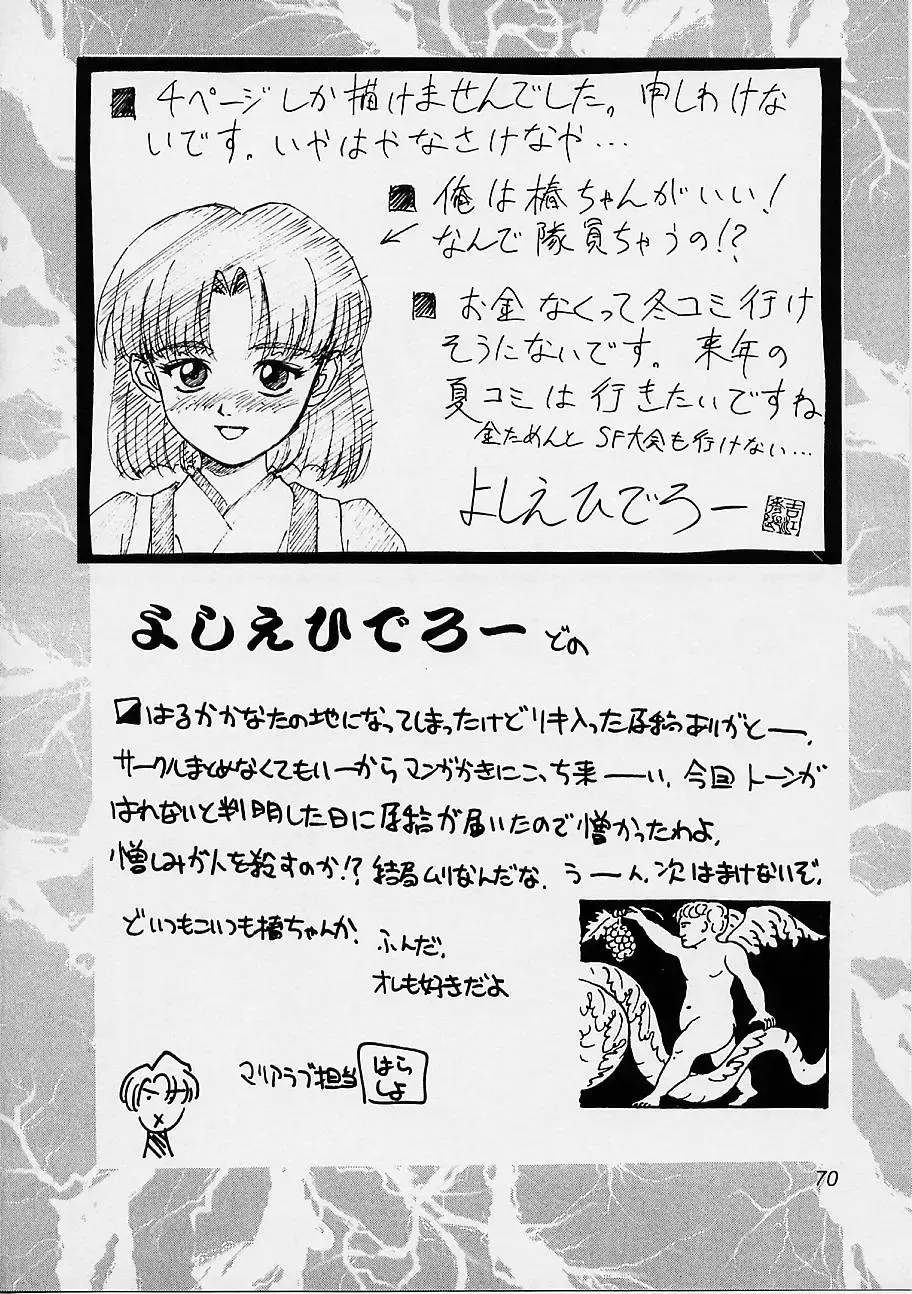 ■ 4ページしか描けませんでした。申しわけな
いです。いやはやなさけなや…
■ 俺は椿ちゃんがいい!
なんで隊員ちゃうの!?
■ お金なくって冬コミ行け
そうにないです。来年の
夏コミは行きたいですね
金ためんと SF大会も行けない…
よしえひでろー
よしえひでろー どの
はるかかなたの地になってしまったけどリキ入った原稿ありがとーっ。
サークルまとめなくてもいーからマンガかきにこっち来ーい。今回トーンが
はれないと判明した日に原稿が届いたので憎かったわよ。
憎しみが人を殺すのか!? 結局ムリなんだな。うーん、次はまけないぞ。
どいつもこいつも椿ちゃんか。
ふんだ。
オレも好きだよ
マリアラブ担当 はら
しょ
70